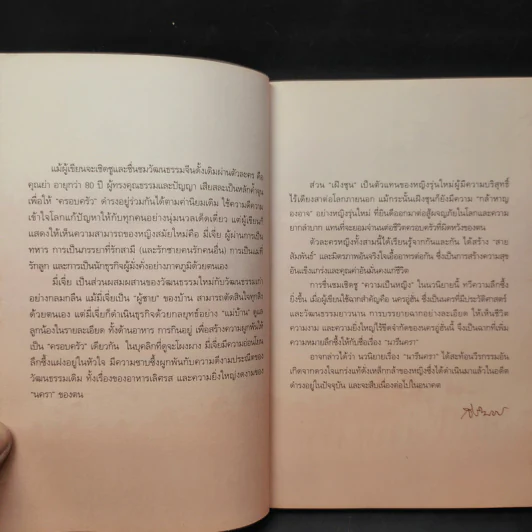 แม้ผู้เขียนจะเชิดชูและชื่นชมวัฒนธรรมจีนดั้งเดิมผ่านตัวละคร คือ
คุณย่า อายุกว่า 80 ปี ผู้ทรงคุณธรรมและปัญญา เสียสละเป็นหลักค้ำคูณ
เพื่อให้ "ครอบครัว" ดำรงอยู่ร่วมกันได้ตามค่านิยมเดิม ใช้ความดีความ
เข้าใจโลกแก้ปัญหาให้กับทุกคนอย่างนุ่มนวลเด็ดเดี่ยว แต่ผู้เขียนก็
แสดงให้เห็นความสามารถของหญิงสมัยใหม่คือ มี่เจี่ย ผู้ผ่านการเป็น
ทหาร การเป็นภรรยาที่รักสามี (และรักชายคนรักคนอื่น) การเป็นแม่ที่
รักลูก และการเป็นนักธุรกิจผู้มั่งคั่งอย่างภาคภูมิด้วยตนเอง
มี่เจี่ย เป็นส่วนผสมผสานของวัฒนธรรมใหม่กับวัฒนธรรมเก่า
อย่างกลมกลืน แม้มี่เจี่ยเป็น "ผู้ชาย" ของบ้าน สามารถตัดสินใจทุกสิ่ง
ด้วยตนเอง แต่มี่เจี่ยก็ดำเนินธุรกิจด้วยกลยุทธ์อย่าง "แม่บ้าน" ดูแล
ลูกน้องในรายละเอียด ทั้งด้านอาหาร การกินอยู่ เพื่อสร้างความผูกพันให้
เป็น "ครอบครัว" เดียวกัน ในบุคลิกที่ดูจะโผงผาง มี่เจี่ยมีความอ่อนโยน
ลึกซึ้งแฝงอยู่ในหัวใจ มีความซาบซึ้งผูกพันกับความดีงามประณีตของ
วัฒนธรรมเดิม ทั้งเรื่องของอาหารเลิศรส และความยิ่งใหญ่งดงามของ
"นครา" ของตน
ส่วน "เฝิงชุน" เป็นตัวแทนของหญิงรุ่นใหม่ผู้มีความบริสุทธิ์
ไร้เดียงสาต่อโลกภายนอก แม้กระนั้นเฝิงชุนก็ยังมีความ "กล้าหาญ
องอาจ" อย่างหญิงรุ่นใหม่ ที่ยินดีออกมาต่อสู้ผจญภัยในโลกและความ
ยากลำบาก แทนที่จะยอมจำนนต่อชีวิตครอบครัวที่ผิดหวังของตน
ตัวละครหญิงทั้งสามนี้ได้เรียนรู้จากกันและกัน ได้สร้าง "สาย
สัมพันธ์" และมิตรภาพอันจริงใจเอื้ออาทรต่อกัน ซึ่งเป็นการสร้างความสุข
อันแข็งแกร่งและคุณค่าอันมั่นคงแก่ชีวิต
การชื่นชมเชิดชู "ความเป็นหญิง" ในนวนิยายนี้ ทวีความลึกซึ้ง
ยิ่งขึ้น เมื่อผู้เขียนใช้ฉากสำคัญคือ นครอู่ฮั่น ซึ่งเป็นนครที่มีประวัติศาสตร์
และวัฒนธรรมยาวนาน การบรรยายฉากอย่างละเอียด ให้เห็นชีวิต
ความงาม และความยิ่งใหญ่ไร้ขีดจำกัดของนครอู่ฮั่นนี้ จึงเป็นฉากที่เพิ่มความ
ความหมายลึกซึ้งให้กับชื่อเรื่อง "นารีนครา"
อาจกล่าวได้ว่า นวนิยายเรื่อง "นารีนครา" ได้สะท้อนวีรกรรมอัน
เกิดจากดวงใจแกร่งแท้ดั่งเหล็กกล้าของหญิงซึ่งได้ดำเนินมาแล้วในอดีต
ดำรงอยู่ในปัจจุบัน และจะสืบเนื่องต่อไปในอนาคต